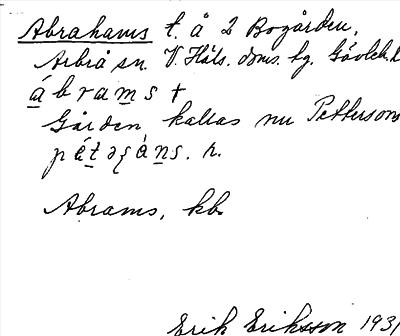 Abrahams t. å 2 Bogården,
Arbrå sn. V. Häls. doms. hg. Gävleb. l
ábrams +
Gården kallas nu Pettersons
Abrams, kb.
Erik Eriksson 1931